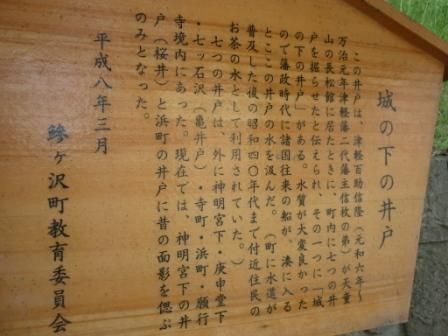 城の下の井戸
この井戸は、津軽百助信隆（元和六年～
万治元年津軽藩二代藩主信枚の弟）が天童
山の長松館に居たときに、町内に七つの井
戸を掘らせたと伝えられ、その一つに「城
の下の井戸」がある。水質が大変良かった
ので藩政時代に諸国往来の船が、湊に入る
とここの井戸の水を汲んだ。（町に水道が
普及した後の昭和四〇年代まで付近住民の
お茶の水として利用されていた。）
七つの井戸は、外に神明宮下・庚申堂下
・七ッ石沢（亀井戸）・寺町・浜町・願行
寺境内にあった。現在では、神明宮下の井
戸（桜井）と浜町の井戸に昔の面影を偲ぶ
のみとなった。
平成八年三月
鰺ヶ沢町教育委員会